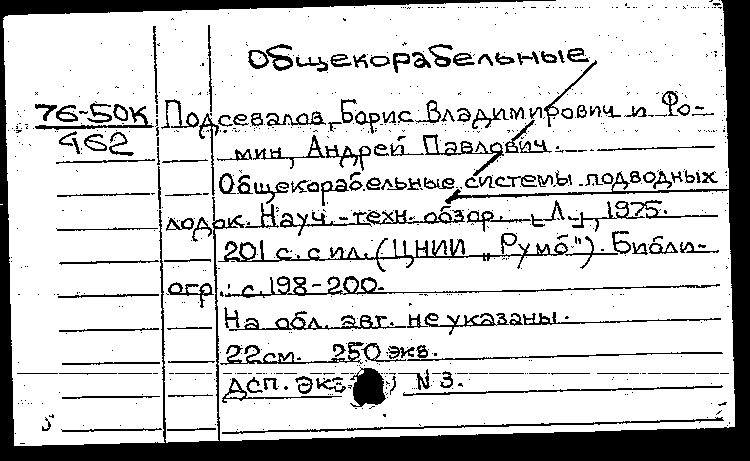 Общекорабельные
76-50К
462
Подсевалов, Борис Владимирович и Фо-
мин, Андрей Павлович.
Общекорабельные системы подводных
лодок. Науч.-техн. обзор. [Л.], 1975.
201 с. с ил. (ЦНИИ „Румб"). Библи-
огр.: с. 198-200.
На обл. авт. не указаны.
22см. 250 экз.
ДСП. Экз. N 3.
5